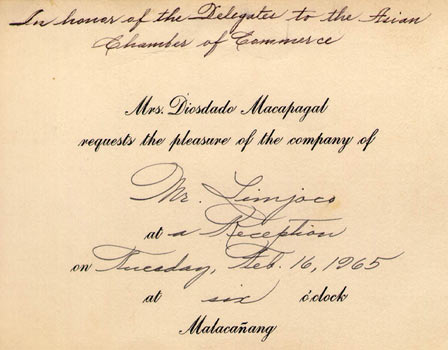 In honor of the Delegates to the Asian
Chamber of Commerce
Mrs. Diosdado Macapagal
requests the pleasure of the company of
Mr. Limjoco
at a Reception
on Tuesday, Feb. 16, 1965
at six o'clock
Malacañang